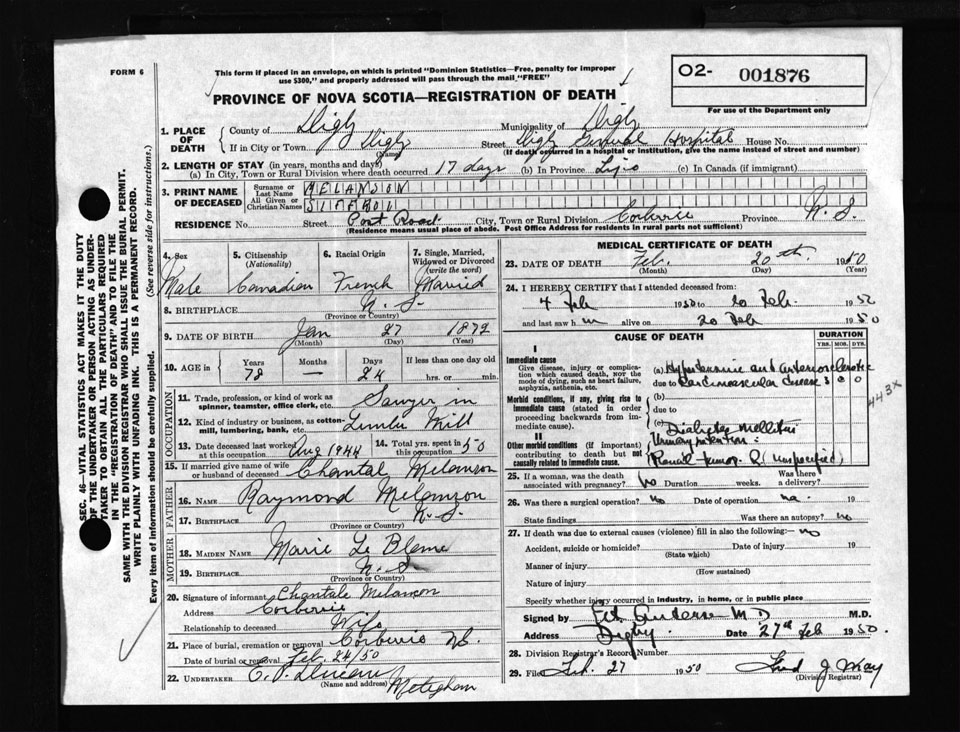 FORM 6
This form if placed in an envelope, on which is printed "Dominion Statistics—Free, penalty for improper
use $300," and properly addressed will pass through the mail "FREE"
O2- 001876
For use of the Department only
PROVINCE OF NOVA SCOTIA—REGISTRATION OF DEATH
1. PLACE OF DEATH
County of Digby Municipality of Digby
If in City or Town Digby Street Digby General Hospital House No.
(Name) (If death occurred in a hospital or institution, give the name instead of street and number)
2. LENGTH OF STAY (in years, months and days)
(a) In City, Town or Rural Division where death occurred 17 days (b) In Province Life (c) In Canada (if immigrant)
3. PRINT NAME OF DECEASED
Surname or Last Name MELANSON
All Given or Christian Names
RESIDENCE No. Street Post Road City, Town or Rural Division Corberrie Province N. S.
(Residence means usual place of abode. Post Office Address for residents in rural parts not sufficient)
4. Sex Male
5. Citizenship (Nationality) Canadian
6. Racial Origin French
7. Single, Married, Widowed or Divorced (write the word) Married
8. BIRTHPLACE N. S.
(Province or Country)
9. DATE OF BIRTH Jan 27 1872
(Month) (Day) (Year)
10. AGE in Years 78 Months — Days 24 If less than one day old
hrs. or min.
OCCUPATION
11. Trade, profession, or kind of work as spinner, teamster, office clerk, etc. Sawyer in
12. Kind of industry or business, as cotton-mill, lumbering, bank, etc. Lumber Mill
13. Date deceased last worked at this occupation Aug 1944
14. Total yrs. spent in this occupation 50
15. If married give name of wife or husband of deceased Chantal Melanson
FATHER
16. NAME Raymond Melanson
17. BIRTHPLACE N. S.
(Province or Country)
MOTHER
18. MAIDEN NAME Marie Le Blanc
19. BIRTHPLACE N. S.
(Province or Country)
20. Signature of informant Chantale Melanson
Address Corberrie
Relationship to deceased Wife
21. Place of burial, cremation or removal Corberrie NS.
Date of burial or removal Feb. 24/50
22. UNDERTAKER Meteghan
(Name and address)
MEDICAL CERTIFICATE OF DEATH
23. DATE OF DEATH Feb. 20th, 1950
(Month) (Day) (Year)
24. I HEREBY CERTIFY that I attended deceased from:
4 Feb 1950 to 20 Feb. 1950
and last saw h im alive on 20 Feb 1950
CAUSE OF DEATH
DURATION
YRS. MOS. DYS.
I
Immediate cause
Give disease, injury or complication which caused death, not the mode of dying, such as heart failure, asphyxia, asthenia, etc.
(a) Hypertensive and arteriosclerotic
due to Cardiovascular disease
443X
Morbid conditions, if any, giving rise to immediate cause (stated in order proceeding backwards from immediate cause).
(b)
due to
(c)
II
Other morbid conditions (if important) contributing to death but not causally related to immediate cause.
Diabetes Mellitus
Urinary retention:
Renal tumor R (unspecified)
25. If a woman, was the death associated with pregnancy? no Duration weeks. Was there a delivery?
26. Was there a surgical operation? no Date of operation na. 19
State findings Was there an autopsy? no
27. If death was due to external causes (violence) fill in also the following:— no
Accident, suicide or homicide? Date of injury 19
(State which)
Manner of injury
(How sustained)
Nature of injury
Specify whether injury occurred in industry, in home, or in public place
Signed by M D M.D.
Address Digby. Date 27th Feb 1950.
28. Division Registrar's Record Number
29. Filed Feb. 27 1950 Fred J May
(Division Registrar)
SEC. 46—VITAL STATISTICS ACT MAKES IT THE DUTY
OF THE UNDERTAKER OR PERSON ACTING AS UNDER-
TAKER TO OBTAIN ALL THE PARTICULARS REQUIRED
IN THE "REGISTRATION OF DEATH" AND TO FILE THE
SAME WITH THE DIVISION REGISTRAR WHO SHALL ISSUE THE BURIAL PERMIT.
WRITE PLAINLY WITH UNFADING INK. THIS IS A PERMANENT RECORD.
Every item of information should be carefully supplied. (See reverse side for instructions.)